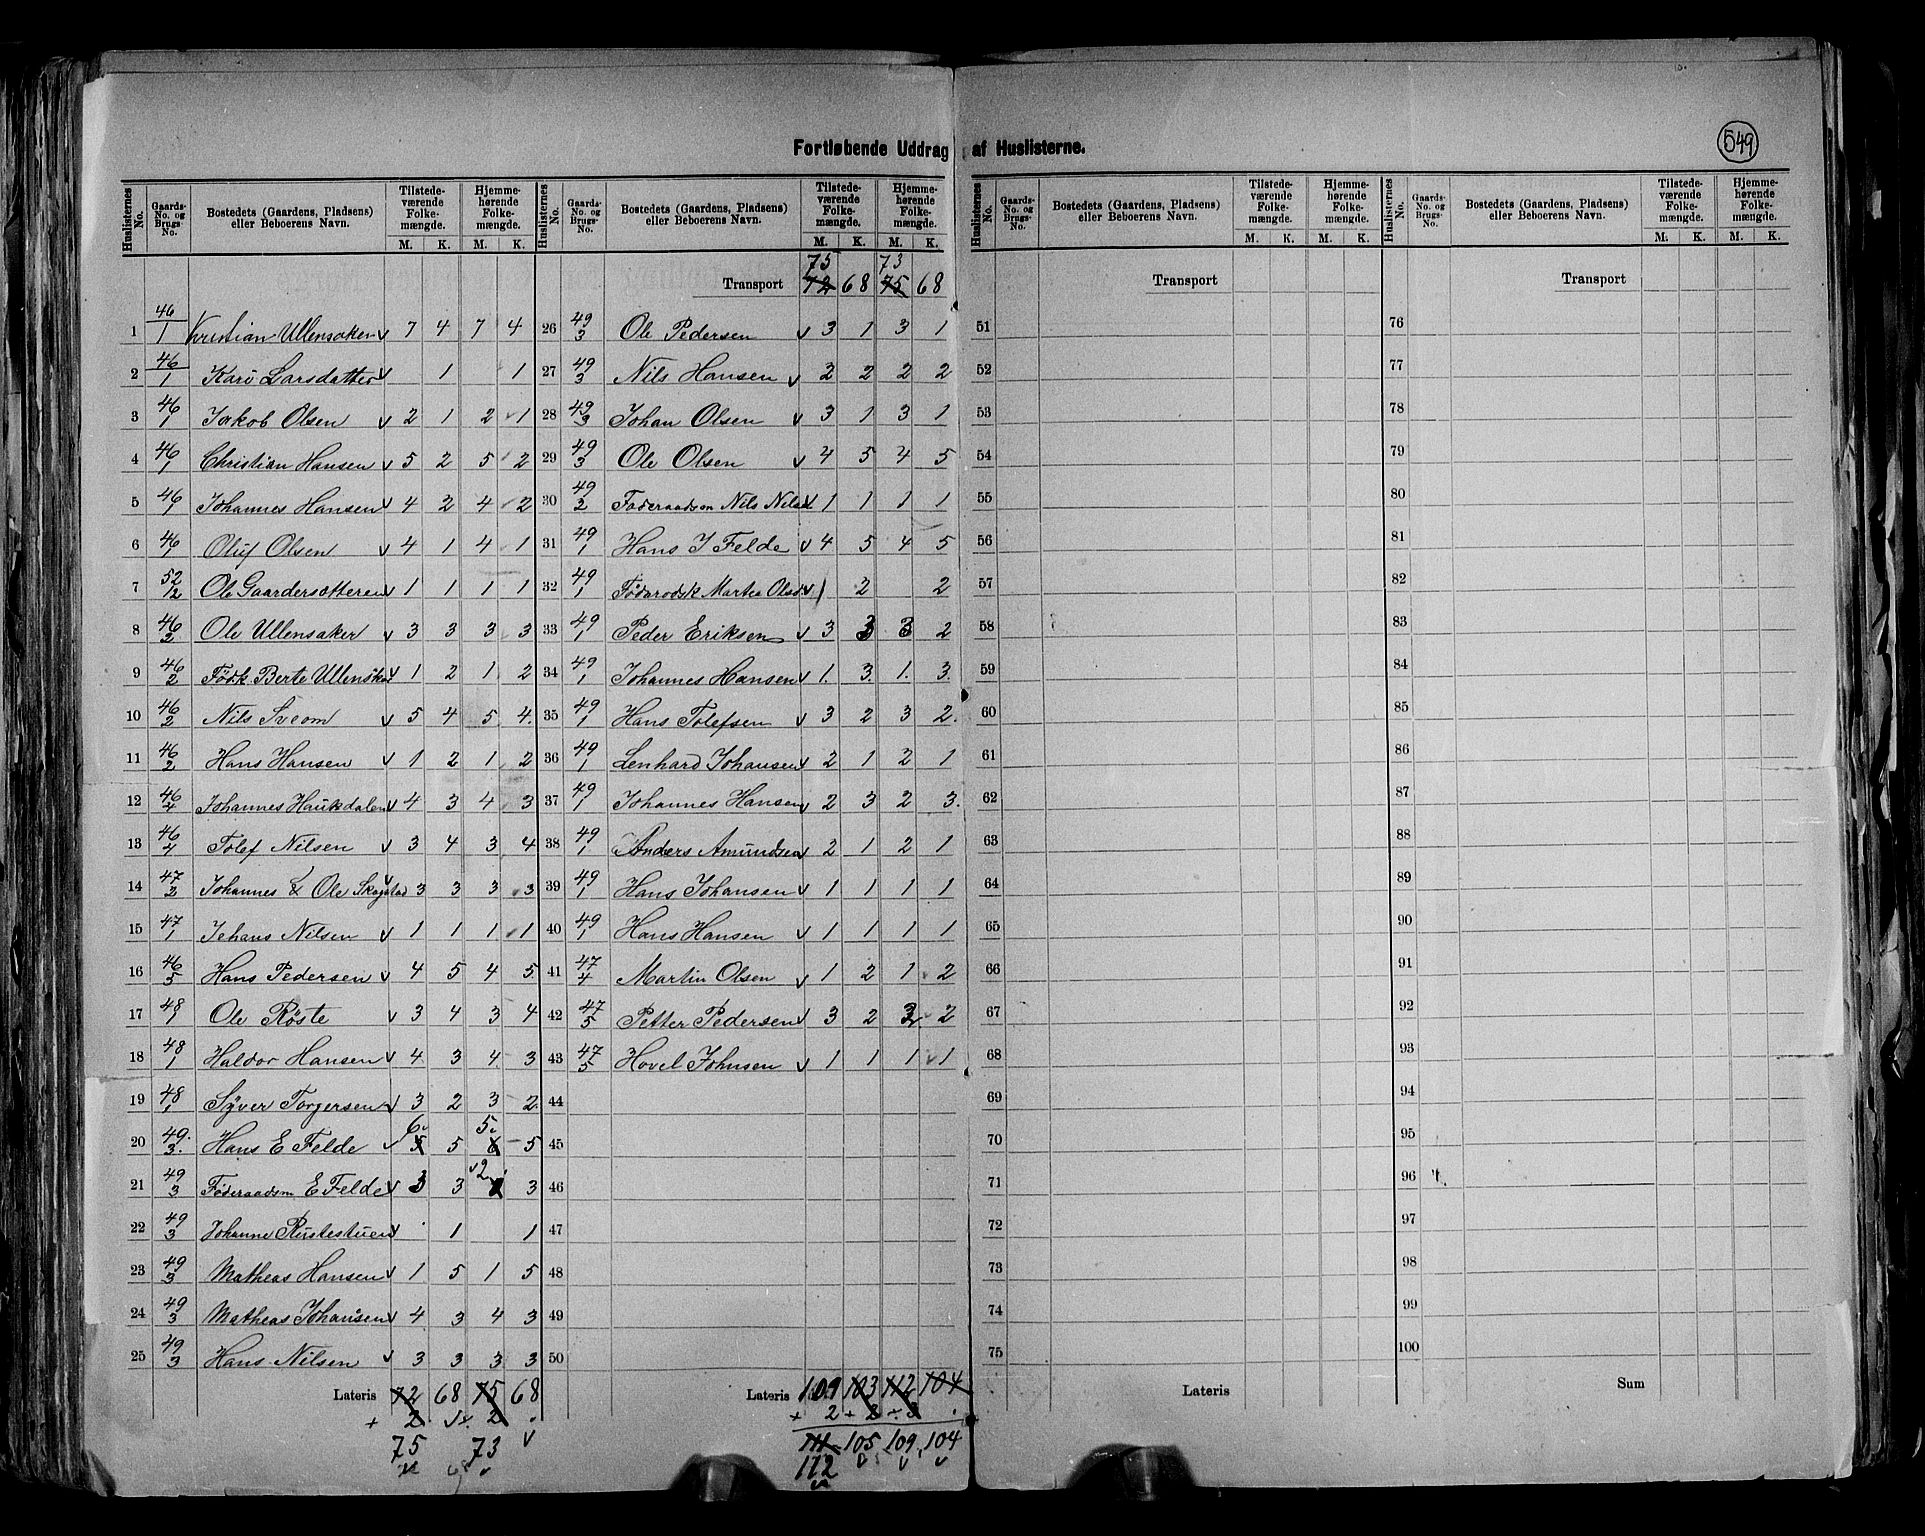 549
Fortløbende Uddrag af Huslisterne.
Huslisternes No. Gaards-No. og Brugs-No. Bostedets (Gaardens, Pladsens) eller Beboerens Navn. Tilstedeværende Folkemængde. M. K. Hjemmehørende Folkemængde. M. K.
1 46/1 Kristian Ullensaker v 7 4 7 4
2 46/1 Kari Larsdatter v 1 1
3 46/1 Jakob Olsen v 2 1 2 1
4 46/1 Christian Hansen v 5 2 5 2
5 46/1 Johannes Hansen v 4 2 4 2
6 46/1 Oluf Olsen v 4 1 4 1
7 52/2 Ole Gaardersætteren v 1 1 1 1
8 46/2 Ole Ullensaker v 3 3 3 3
9 46/2 Födk. Berte Ullensaker v 1 2 1 2
10 46/2 Nils Sveom v 5 4 5 4
11 46/2 Hans Hansen v 1 2 1 2
12 46/4 Johannes Haukdalen v 4 3 4 3
13 46/4 Tolef Nilsen v 3 4 3 4
14 47/2 Johannes & Ole Skogstad v 3 3 3 3
15 47/1 Jehans Nilsen v 1 1 1 1
16 46/5 Hans Pedersen v 4 5 4 5
17 48/1 Ole Röste v 3 4 3 4
18 48/1 Haldor Hansen v 4 3 4 3
19 48/1 Syver Torgersen v 3 2 3 2
20 49/3 Hans E Felde v 6 5 5 5 6 5
21 49/3 Föderaadsm E Felde v 3 3 2 3
22 49/3 Johanne Rustestuen v 1 1
23 49/3 Matheas Hansen v 1 5 1 5
24 49/3 Matheas Johansen v 4 3 4 3
25 49/3 Hans Nilsen v 3 3 3 3
Lateris 72 68 75 68
+ 2 ÷ 2
75 73
Huslisternes No. Gaards-No. og Brugs-No. Bostedets (Gaardens, Pladsens) eller Beboerens Navn. Tilstedeværende Folkemængde. M. K. Hjemmehørende Folkemængde. M. K.
75 73
Transport 72 68 75 68
26 49/3 Ole Pedersen v 3 1 3 1
27 49/3 Nils Hansen v 2 2 2 2
28 49/3 Johan Olsen v 3 1 3 1
29 49/3 Ole Olsen v 4 5 4 5
30 49/2 Föderaadsm Nils Nilsen v 1 1 1 1
31 49/1 Hans J Felde v 4 5 4 5
32 49/1 Födarodsk Marthea Olsd. v 2 2
33 49/1 Peder Eriksen v 3 3 3 2
34 49/1 Johannes Hansen v 1 3 1 3
35 49/1 Hans Tolefsen v 3 2 3 2
36 49/1 Lenhard Johansen v 2 1 2 1
37 49/1 Johannes Hansen v 2 3 2 3
38 49/1 Anders Amundsen v 2 1 2 1
39 49/1 Hans Johansen v 1 1 1 1
40 49/1 Hans Hansen v 1 1 1 1
41 47/4 Martin Olsen v 1 2 1 2
42 47/5 Petter Pedersen v 3 2 3 2
43 47/5 Hovel Johnsen v 1 1 1 1
44
45
46
47
48
49
50
Lateris 109 103 112 104
+ 2 + 2 ÷ 3
111 105 109 104
112
Huslisternes No. Gaards-No. og Brugs-No. Bostedets (Gaardens, Pladsens) eller Beboerens Navn. Tilstedeværende Folkemængde. M. K. Hjemmehørende Folkemængde. M. K.
Transport
51
52
53
54
55
56
57
58
59
60
61
62
63
64
65
66
67
68
69
70
71
72
73
74
75
Lateris
Huslisternes No. Gaards-No. og Brugs-No. Bostedets (Gaardens, Pladsens) eller Beboerens Navn. Tilstedeværende Folkemængde. M. K. Hjemmehørende Folkemængde. M. K.
Transport
76
77
78
79
80
81
82
83
84
85
86
87
88
89
90
91
92
93
94
95
96
97
98
99
100
Sum